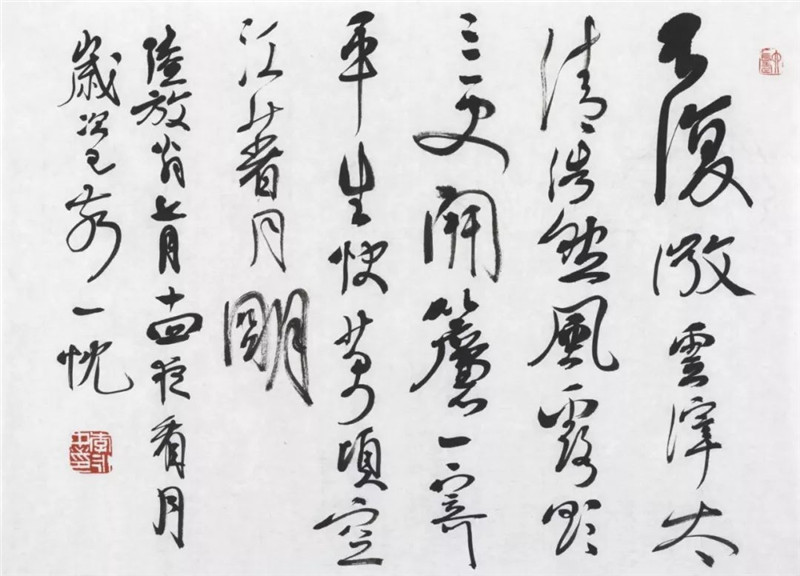 不復微雲滓太
清浩然風露欲
三更開簾一寄
平生快萬頃空
江著月明
陸放翁七月十四夜看月
歲次己亥一忱